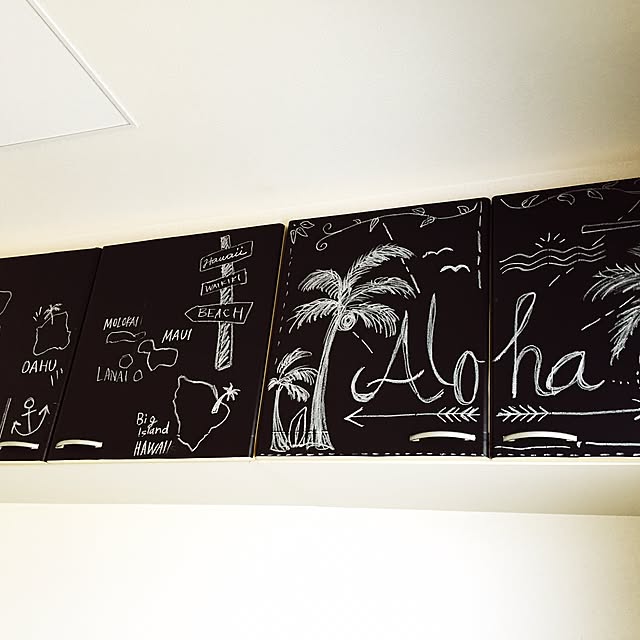 OAHU
MOLOKAI
MAUI
LANAI
Big
Island
HAWAII
Hawaii
WAIKIKI
BEACH
Aloha